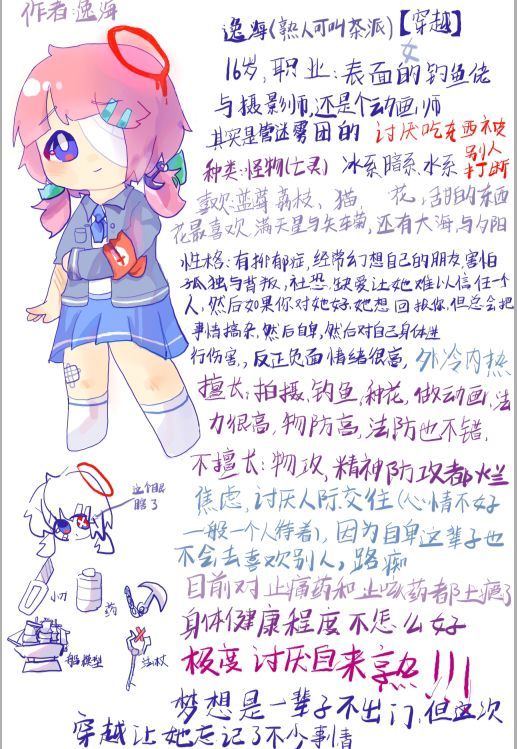 作者:逸海
逸海(熟人可叫茶派)【穿越】
女
16岁,职业:表面的钓鱼佬
与摄影师,还是个动画师
其实是营迷雾团的 讨厌吃东西被
别人
打断
种类:怪物(亡灵) 冰系,暗系,水系
喜欢:蓝莓,荔枝、猫, 花,甜的东西
花最喜欢,满天星与矢车菊,还有大海与夕阳
性格:有抑郁症,经常幻想自己的朋友,害怕
孤独与背叛,社恐,缺爱让她难以信任一个
人,然后如果你对她好,她想回报你,但总会把
事情搞杂,然后自卑,然后对自己身体进
行伤害,,反正负面情绪很高, 外冷内热
擅长:拍摄,钓鱼,种花,做动画,法
力很高,物防高,法防也不错,
不擅长:物攻,精神防攻者都烂
焦虑,讨厌人际交往(心情不好
一般一个人待着),因为自卑这辈子也
不会去喜欢别人,路痴
目前对止痛药和止咳药都上瘾了
身体健康程度不怎么好
极度讨厌自来熟!!!
梦想是一辈子不出门,但这次
穿越让她忘记了不少事情
这个眼
瞎了
小刀
药
船模型
法杖